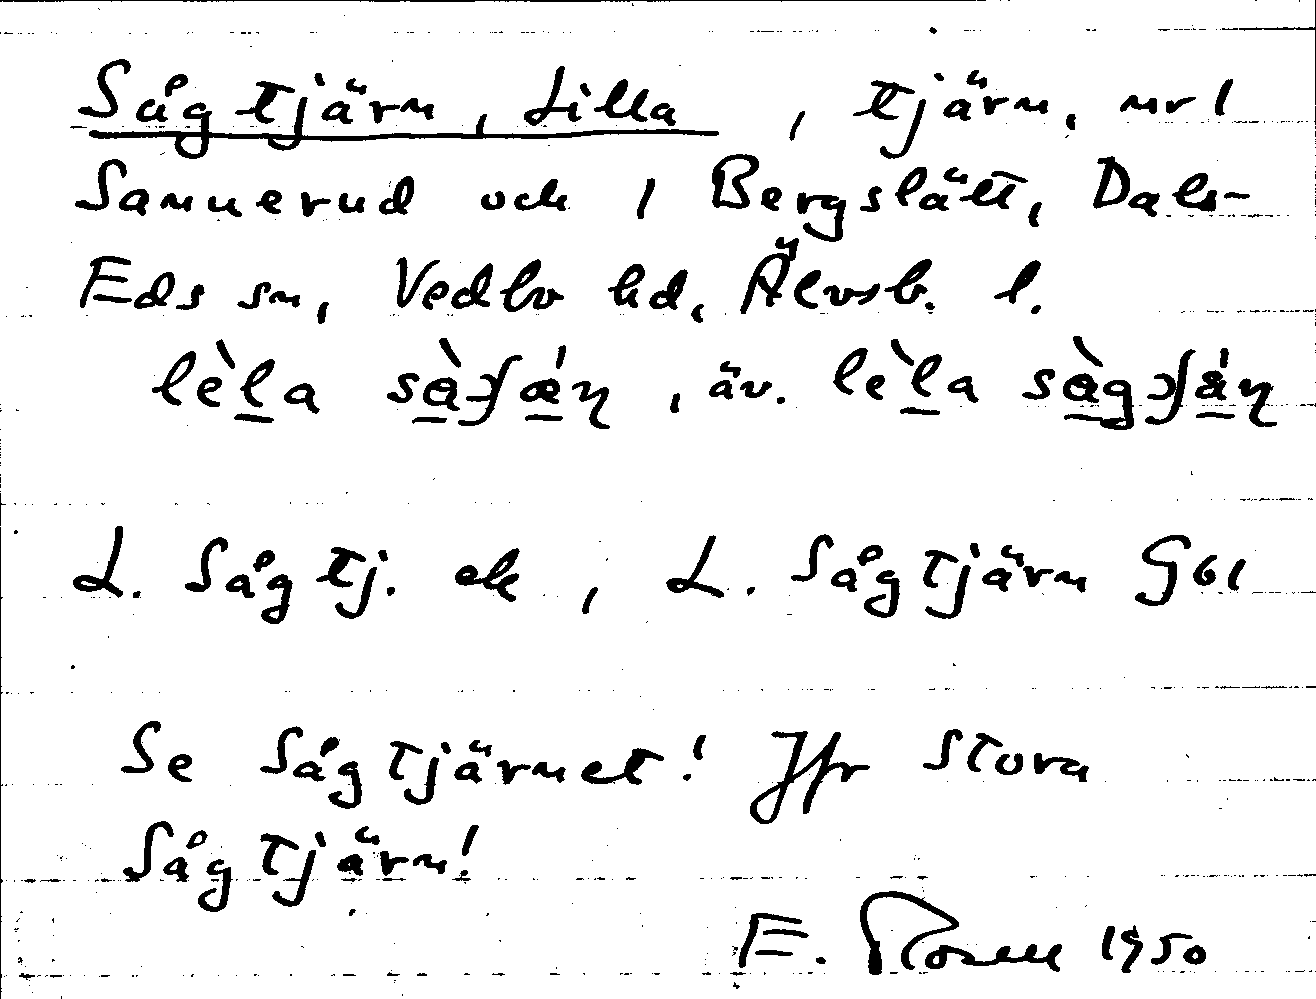 Sågtjärn, Lilla, tjärn, nr 1
Sannerud och 1 Bergslätt, Dals-
Eds sn, Vedbo hd, Älvsb. l.
L. Sågtj. ek, L. Sågtjärn G61
Se Sågtjärnet! Jfr Stora
Sågtjärn!
E. Rosell 1950